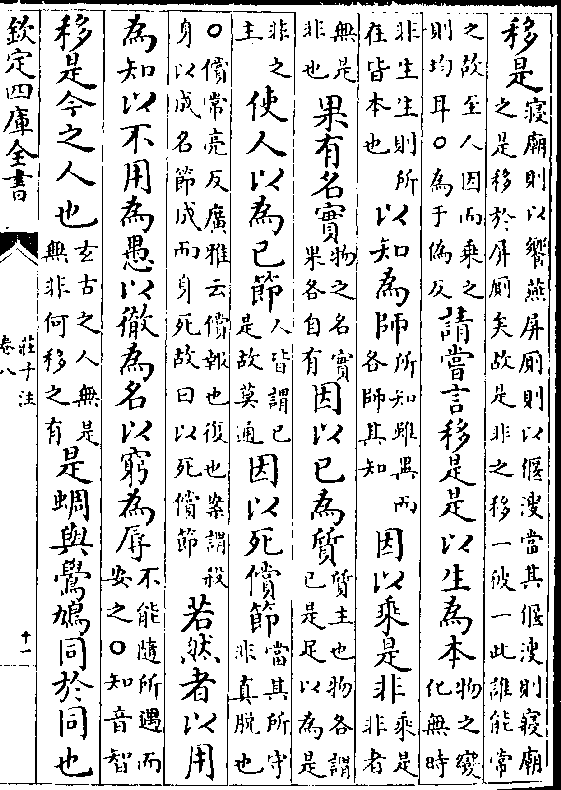 移是寢廟則以饗燕屏厠則以偃溲當其偃溲則寢廟之是移於屏厠矣故是非之移一彼一此誰能常
之故至人因而乘之則均耳○為于偽反請嘗言移是是以生為本物之變化無時
非生生則所在皆本也以知為師所知雖異而各師其知因以乘是非乘是非者
無是非也果有名實物之名實果各自有因以已為質質主也物各謂已是足以為是
非之主使人以為已節人皆謂已是故莫通因以死償節當其所守非真脱也
○償常亮反廣雅云償報也復也案謂殺身以成名節成而身死故曰以死償節若然者以用
為知以不用為愚以徹為名以窮為辱不能隨所遇而安之○知音智
移是今之人也玄古之人無是無非何移之有是蜩與鷽鳩同於同也
欽定四庫全書
莊子注
卷八
十一